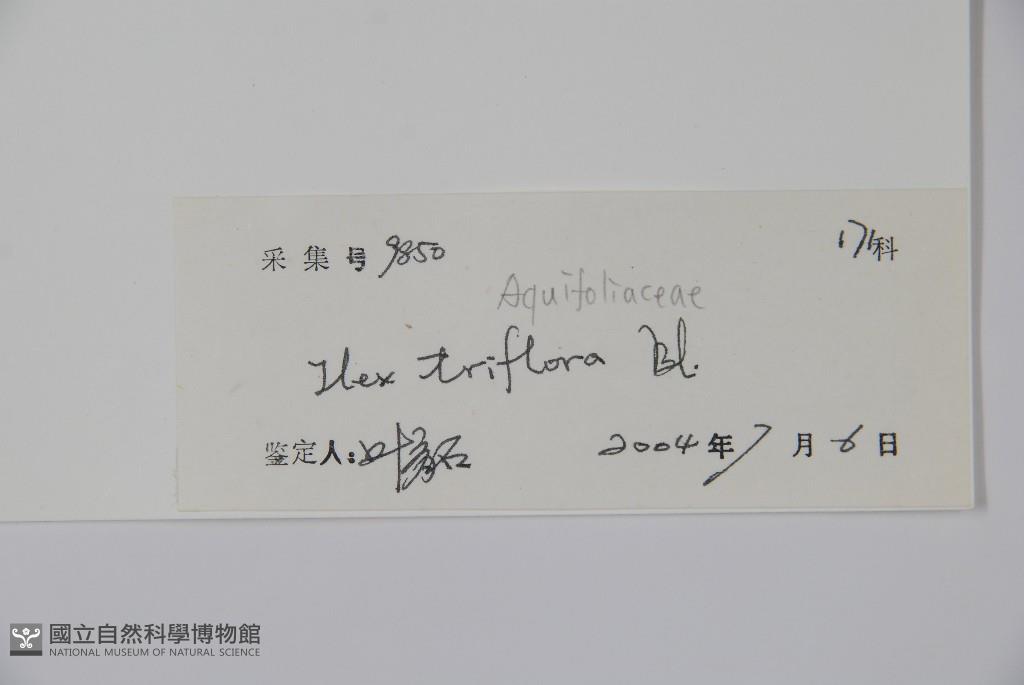 采集号 9850 171科
Aquifoliaceae
Ilex triflora Bl.
鉴定人: 叶
2004年7月6日
國立自然科學博物館
NATIONAL MUSEUM OF NATURAL SCIENCE